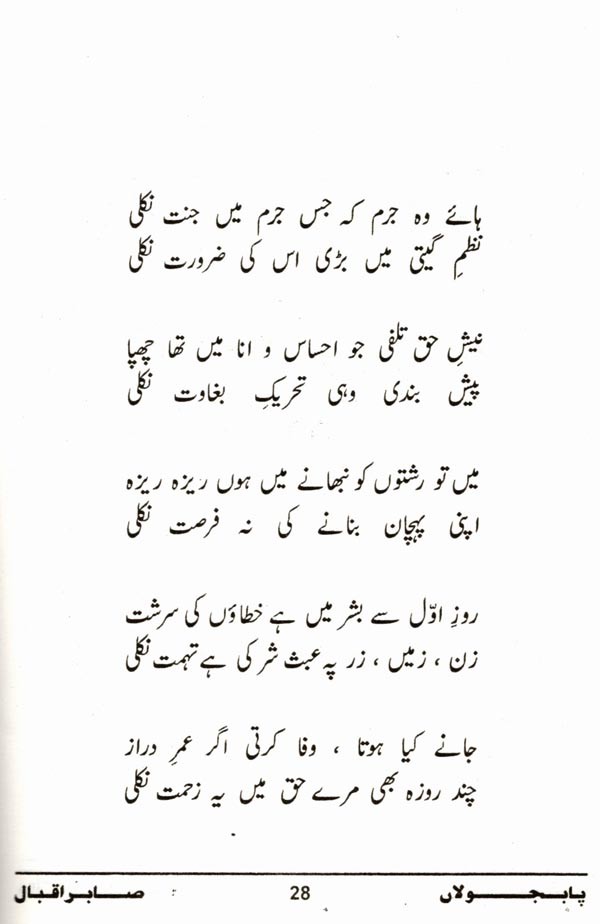 ہائے وہ جرم کہ جس جرم میں جنت نکلی
نظمِ گیتی میں بڑی اس کی ضرورت نکلی
نیشِ حق تلفی جو احساس و انا میں تھا چھپا
پیش بندی وہی تحریکِ بغاوت نکلی
میں تو رشتوں کو نبھانے میں ہوں ریزہ ریزہ
اپنی پہچان بنانے کی نہ فرصت نکلی
روزِ اوّل سے بشر میں ہے خطاؤں کی سرشت
زن ، زمیں ، زر پہ عبث شر کی ہے تہمت نکلی
جانے کیا ہوتا ، وفا کرتی اگر عمرِ دراز
چند روزہ بھی مرے حق میں یہ زحمت نکلی
پابجولاں 28 صابر اقبال